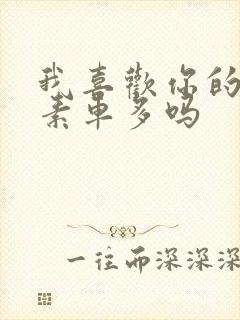 我喜歡你的
素車多吗
一往而深深深